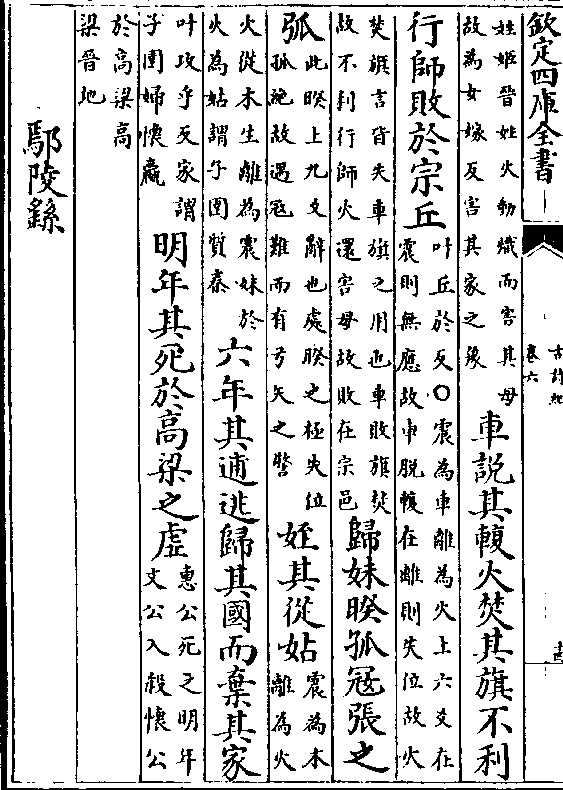 欽定四庫全書
古詩紀
卷六
姓姬晉姓火動熾而害其母
故為女嫁反害其家之象
車說其輹火焚其旗不利
行師敗於宗丘
叶丘於反〇震為車離為火上六爻在
震則無應故車脱輹在離則失位故火
焚旗言皆失車旗之用也車敗旗焚
故不利行師火還害母故敗在宗邑
歸妹睽孤冦張之
弧
此睽上九爻辭也處睽之極失位
孤絶故遇冦難而有弓矢之警
姪其從姑
震為木
離為火
火從木生離為震妹於
火為姑謂子圉質秦
六年其逋逃歸其國而棄其家
叶攻乎反家謂
子圉婦懷嬴
明年其死於高梁之虛
惠公死之明年
文公入殺懷公
於高梁高
梁晉地
鄢陵繇